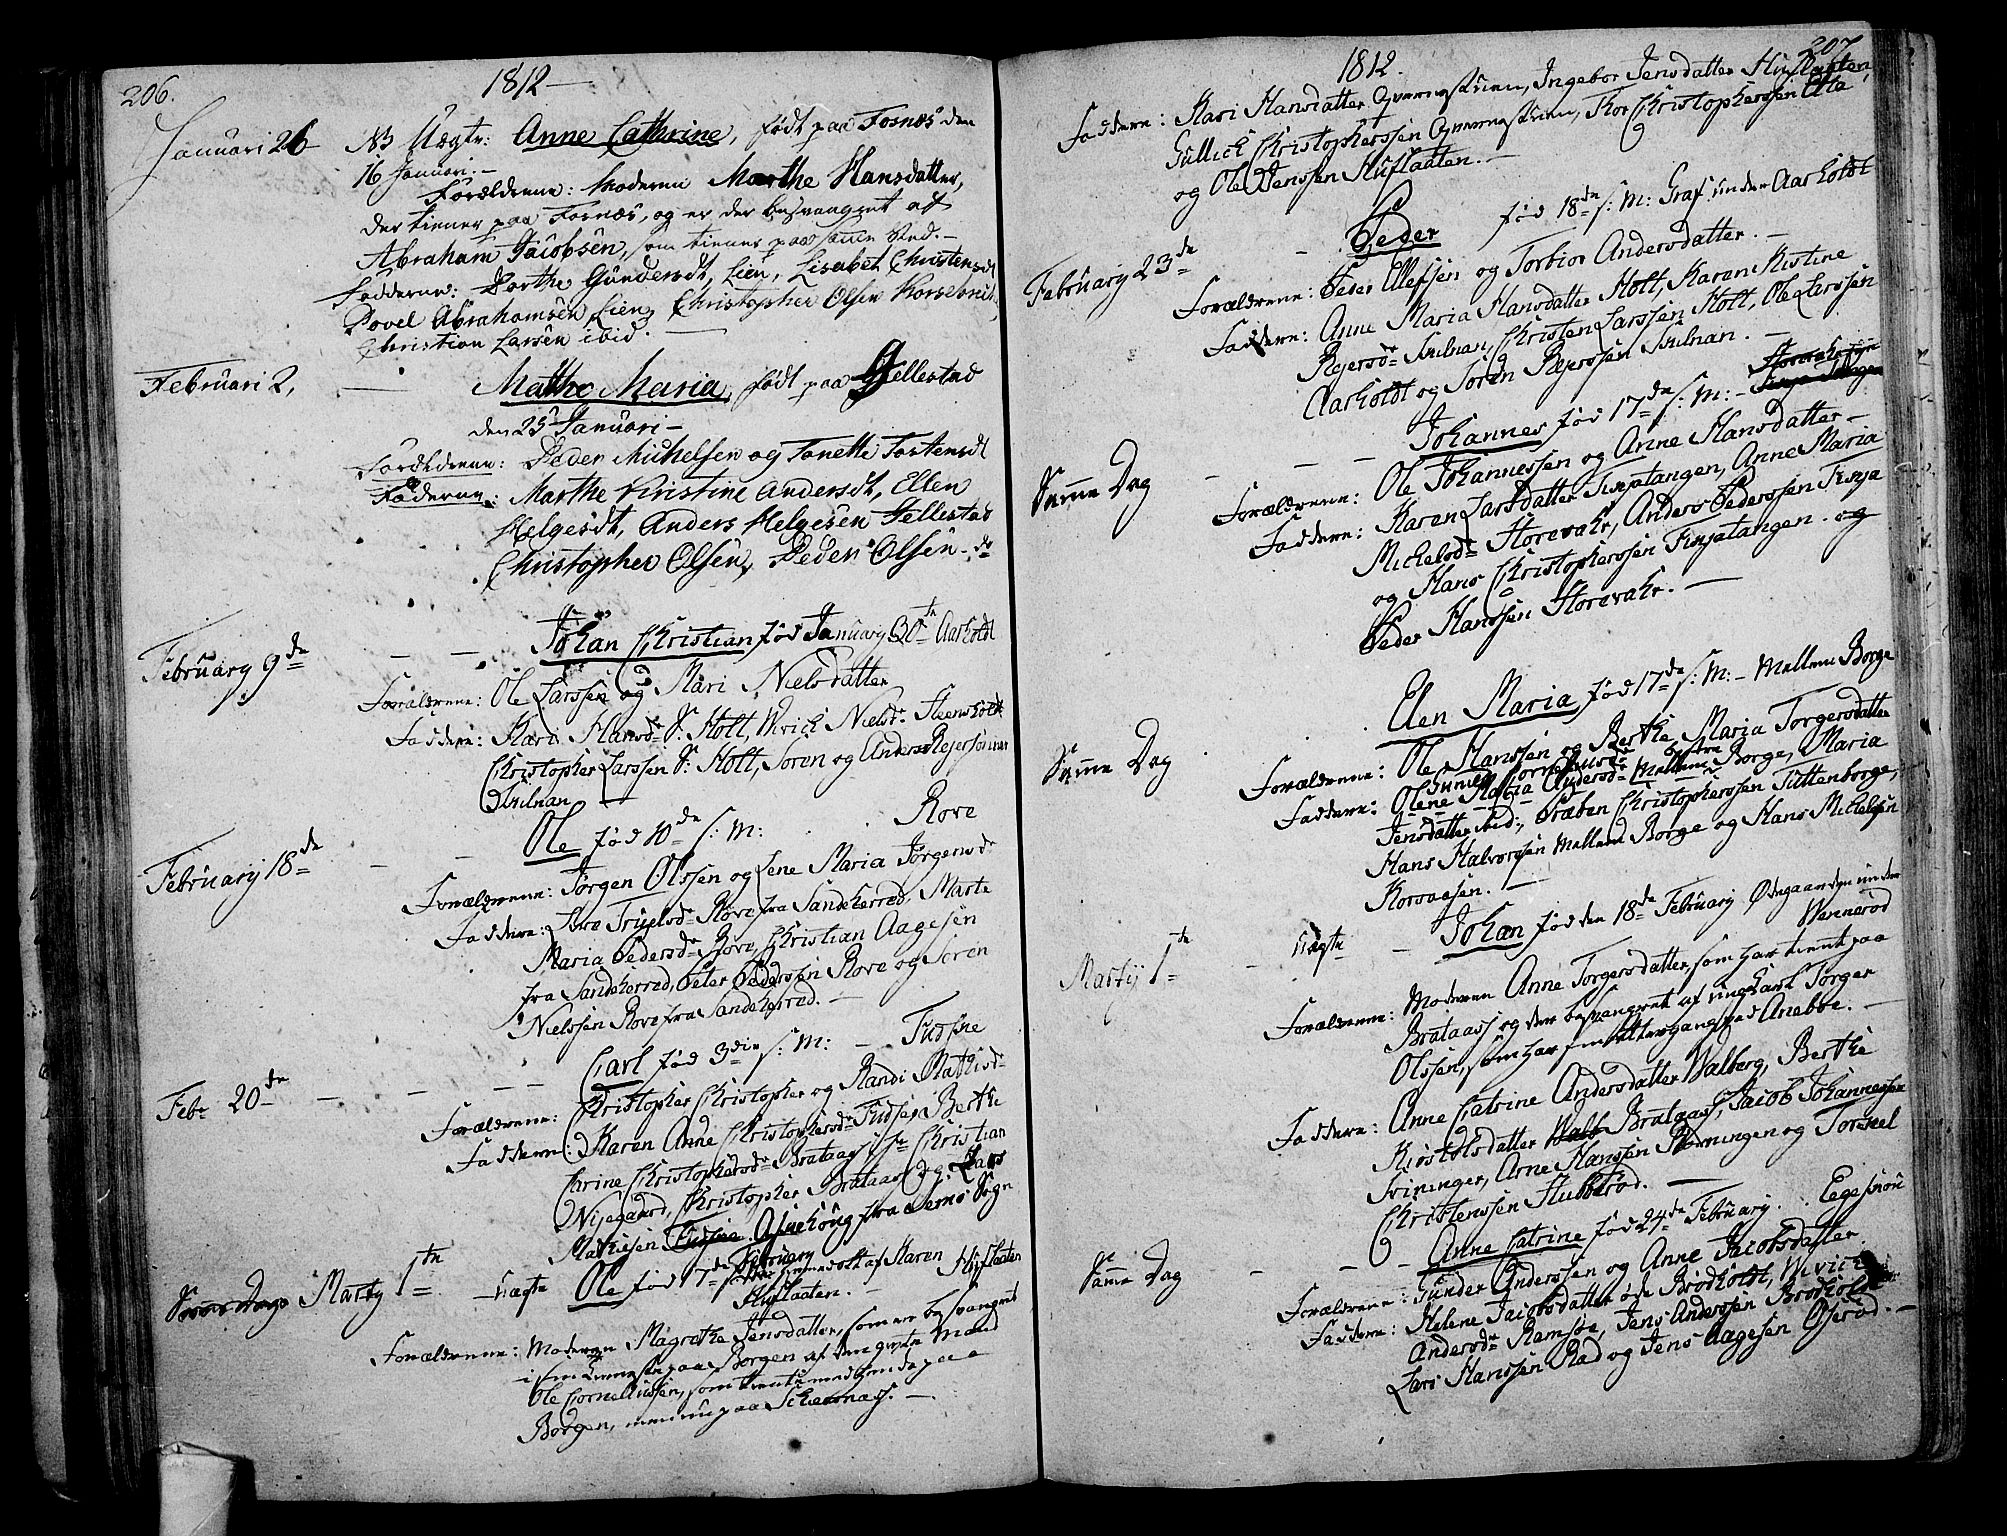 206.
1812 —
Januari 26 NB Uægte: Anne Cathrine, født paa Fosnæs den
16 Januari. —
Forældrene: Moderen Marthe Hansdatter,
der tiener paa Fornæs, og er der besvangret af
Abraham Jacobsen, som tiener paa samme Sted. —
Fadderne: Dorthe Gundersdt, Lien, Lisabet Christensdt
Povel Abrahamsen Lien, Christopher Olsen
Christian Larsen ibid.
Februari 2, Mathe Maria, født paa Gjellestad
den 25 Januari —
Forældrene: Peder Michelsen og Tonette Tostensdt
Fadderne: Marthe Kirstine Andersdt, Ellen
Helgesdt, Anders Helgesen Jellestad
Christopher Olsen, Peder Olsen — do
February 9de — — Johan Christian fød January 30te Aarholdt
Forældrene: Ole Larssen og Mari Nielsdatter
Faddere: Kari Hansdr Sr Holt, Wirich Nielsdr Steensholt
Christopher Larssen Sr Holt, Søren og Anders Rejersønner
Svilnan —
February 18de — — Ole fød 10de s: M: Rove
Forældrene: Jørgen Olssen og Lene Maria Jørgensdr
Faddere: Truelsdr Rove fra Sandeherred, Marte
Maria Pedersdr Rove, Christian Aagesen
fra Sandeherred, Peter Pederssen Rove og Søren
Nielssen Rove fra Sandeherred. —
Febr 20de — — Carl fød 3die s: M: — Fudsne
Forældrene: Christopher Christopher og Randi Mathisdr
Faddere: Karen Anne Christophersdr Fudsne, Berthe
Carine Christophersdr Brataas, Christian
Nijegaard, Christopher Brataas og Lars
Mathiesen fra Sems Sogn
Marty 1te — Uægte Ole fød 17de February Huflaaten
Huflaaten. —
Forældrene: Moderen Magrethe Jensdatter, som er besvangret
i sin Tieneste paa Borgen af den givte Mand
Ole Cornelliussen, som tiente med hende paa
Borgen, men nu paa —
207
1812.
Faddere: Kari Hansdatter Qverneskuen, Ingebor Jensdatter Huflaaten,
Gullich Christopherssen Qverneskuen, Thor Christopherssen
og Ole Jenssen Huflaaten. —
February 23de — Peder fød 18de s: M: Graf under Aarholdt
Forældrene: Peder Ellefsen og Torbior Andersdatter. —
Faddere: Anne Maria Hansdatter Holt, Karen Kistine
Rejersdr Svilnan, Christen Larssen Holt, Ole Larssen
Aarholdt og Søren Rejerssen Svilnan. —
Samme Dag — — Johannes fød 17de s: M: — Storevahr
Forældrene: Ole Johannessen og Anne Hansdatter —
Faddere: Karen Larsdatter Tinjatangen, Anne Maria
Michelsdr Storevahr, Anders Pederssen Tinja
og Hans Christopherssen Tinjatangen og
Peder Hanssen Storevahr. —
Samme Dag Elen Maria fød 17de s: M: — Mellem Borge
Forældrene: Ole Hanssen og Berthe Maria Torgersdatter
Faddere: Olene Maria Andersdr Mellem Borge, Maria
Jensdatter ibid:, Præben Christopherssen Tuttenborge,
Hans Halvorssen Mellem Borge og Hans Michelsen
Korsvesen. —
Marty 1te — Uægte — Johan fød den 18de February Ødegaarden under
Wennerød
Forældrene: Moderen Anne Torgersdatter, som har tient paa
Brataas og der besvangret af ungkarl Torger
Olssen, som har sin Tilhergang paa Aneboe. —
Faddere: Anne Catrine Andersdatter Walberg, Berthe
Kiøstolsdatter Brataas, Jacob Johannessen
Svininger, Arne Hanssen Rørningen og Torkel
Christenssen Hubberød. —
Samme Dag — — Anne Catrine fød 24de February. Eegesmoen
Forældrene: Gunder Anderssen og Anne Jacobsdatter
Faddere: Helene Jacobsdatter øde Brodholdt, Wivich
Andersdr Ramsøe, Jens Anderssen Brodholdt
Lars Hanssen Rad og Jens Aagesen Oserød. —